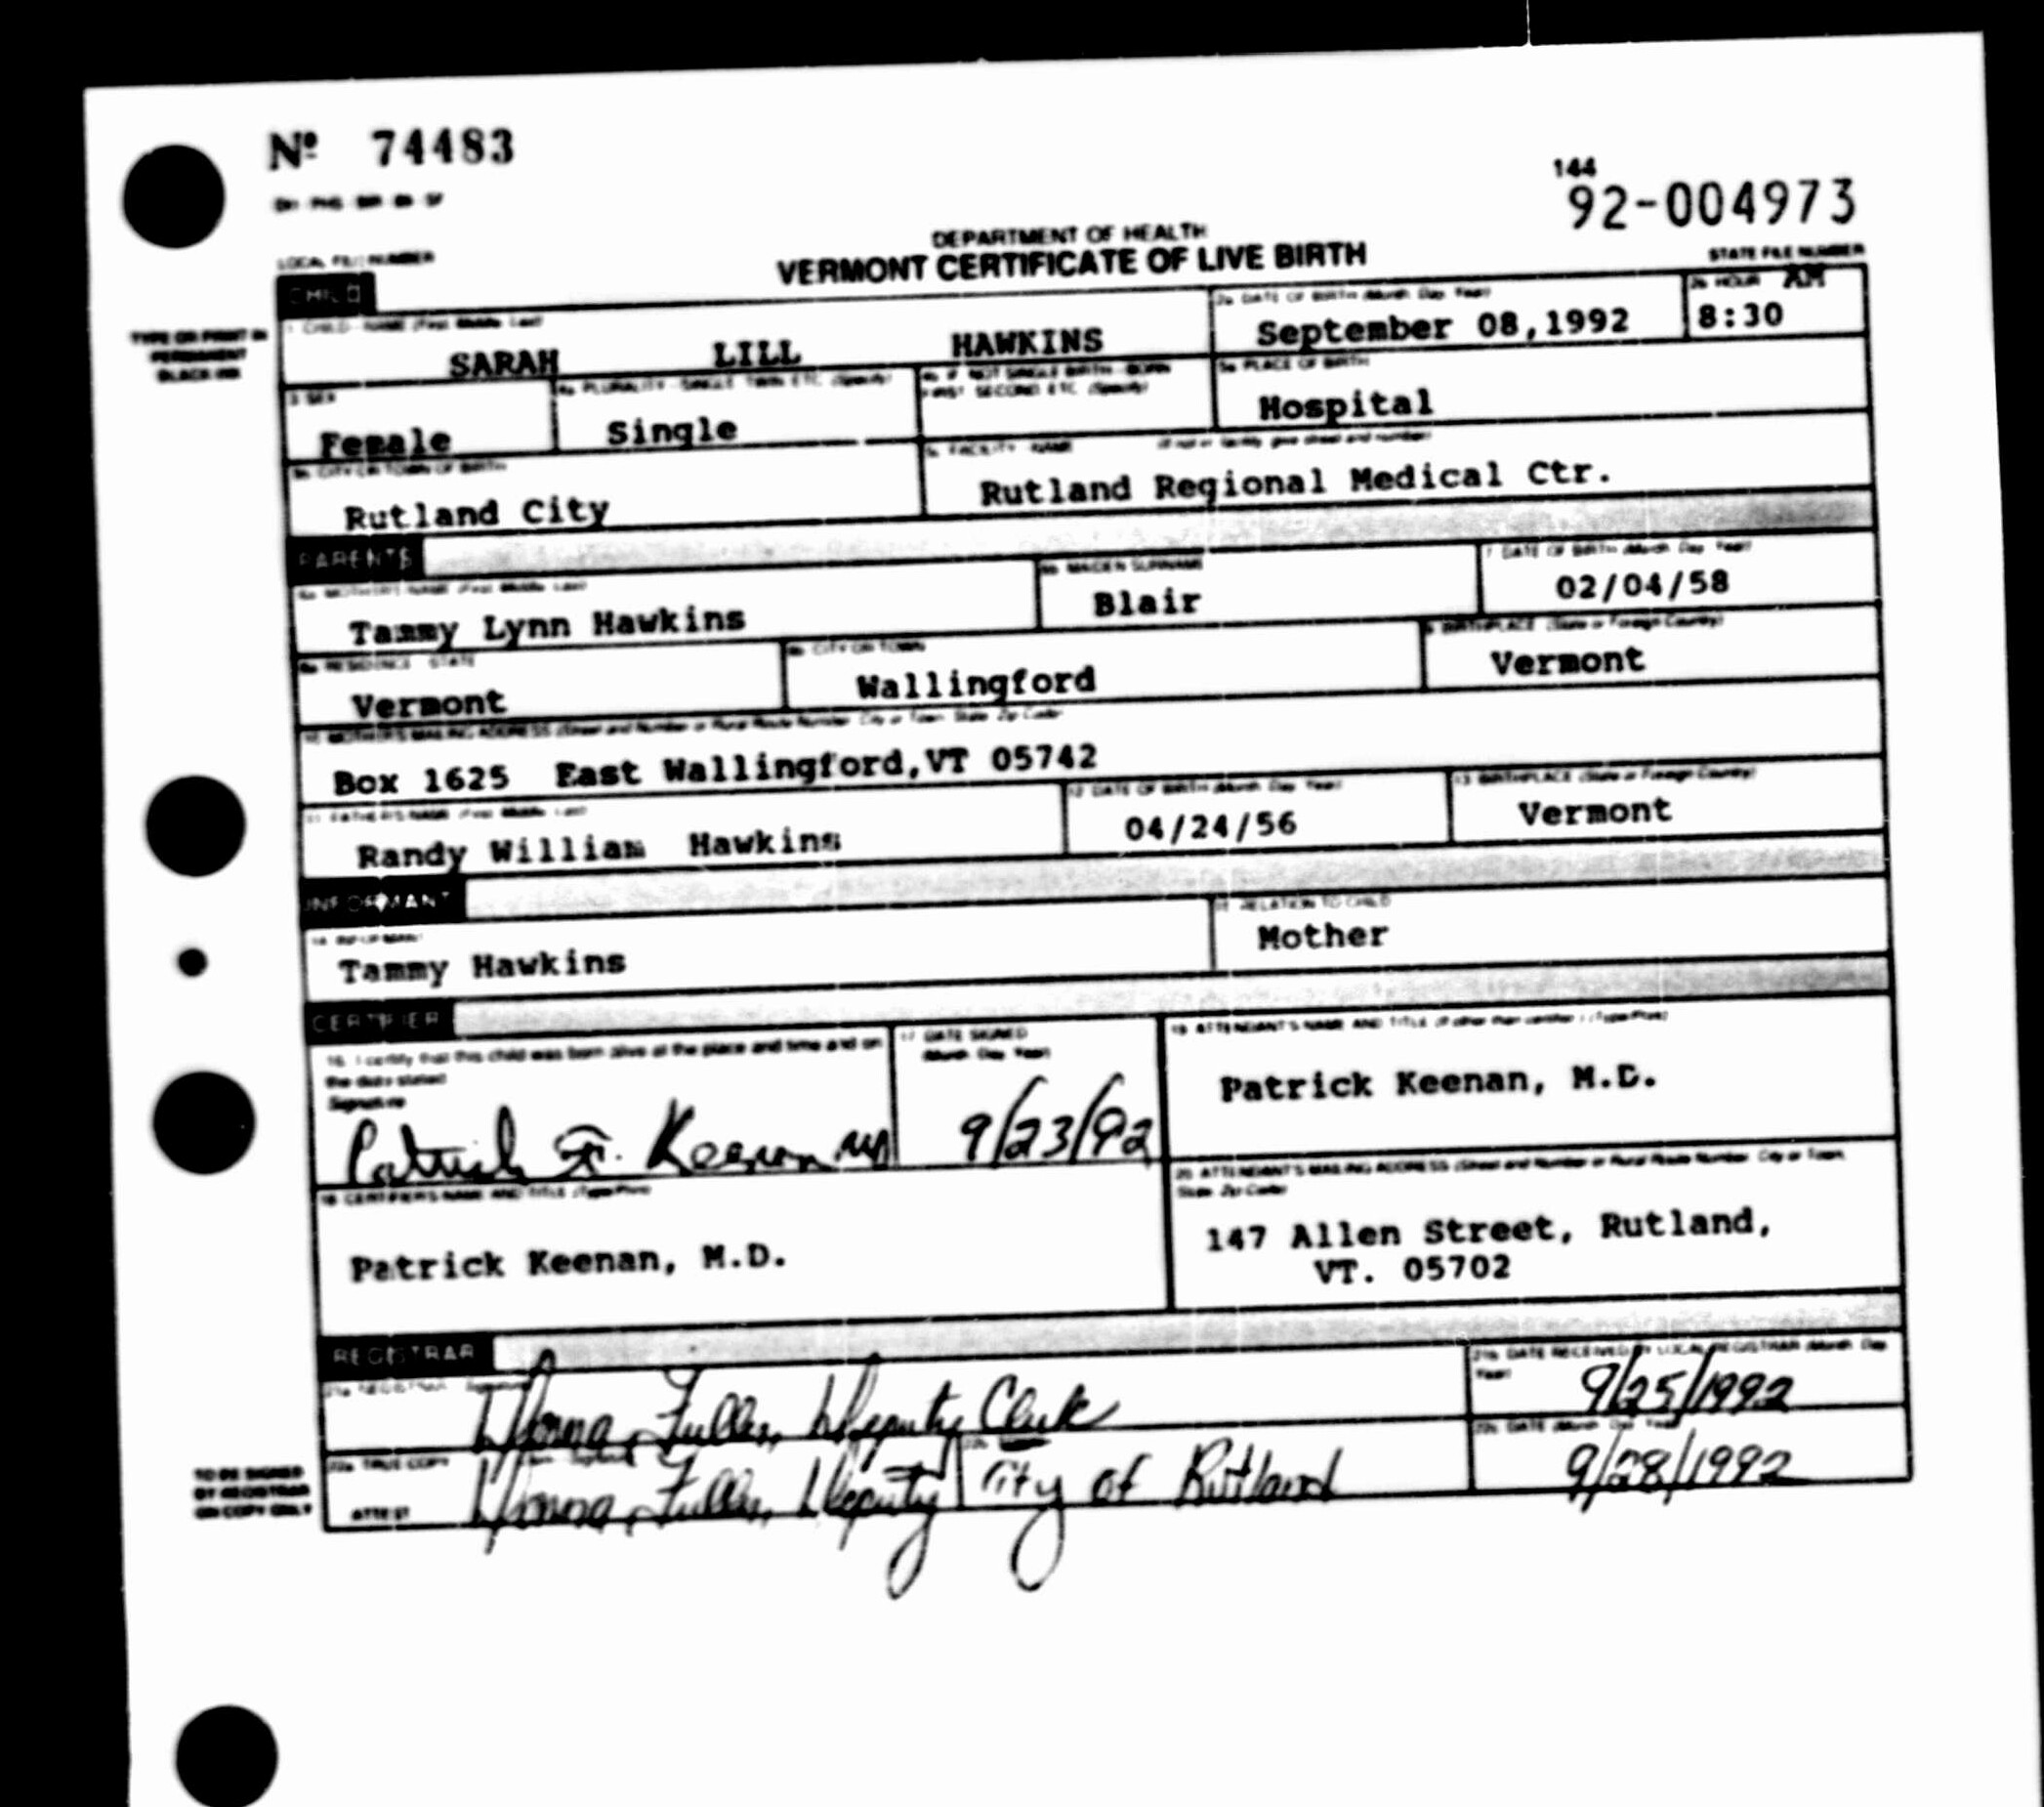 Nº 74483
144
92-004973
DEPARTMENT OF HEALTH
LOCAL FILE NUMBER
VERMONT CERTIFICATE OF LIVE BIRTH
STATE FILE NUMBER
CHILD
TYPE OR PRINT IN
PERMANENT
BLACK INK
1 CHILD - NAME (First Middle Last)
SARAH LILL HAWKINS
2a DATE OF BIRTH (Month Day Year)
September 08,1992
2b HOUR AM
8:30
3 SEX
Female
4a PLURALITY - SINGLE TWIN ETC (Specify)
Single
4b IF NOT SINGLE BIRTH - BORN
FIRST SECOND ETC (Specify)
5a PLACE OF BIRTH
Hospital
5b CITY OR TOWN OF BIRTH
Rutland City
5c FACILITY - NAME (If not in facility give street and number)
Rutland Regional Medical Ctr.
PARENTS
6a MOTHER'S NAME (First Middle Last)
Tammy Lynn Hawkins
6b MAIDEN SURNAME
Blair
7 DATE OF BIRTH (Month Day Year)
02/04/58
8a RESIDENCE - STATE
Vermont
8b CITY OR TOWN
Wallingford
9 BIRTHPLACE (State or Foreign Country)
Vermont
10 MOTHER'S MAILING ADDRESS (Street and Number or Rural Route Number City or Town State Zip Code)
Box 1625 East Wallingford,VT 05742
11 FATHER'S NAME (First Middle Last)
Randy William Hawkins
12 DATE OF BIRTH (Month Day Year)
04/24/56
13 BIRTHPLACE (State or Foreign Country)
Vermont
INFORMANT
14 INFORMANT
Tammy Hawkins
15 RELATION TO CHILD
Mother
CERTIFIER
16. I certify that this child was born alive at the place and time and on
the date stated
Signature
Patrick F. Keenan MD
17 DATE SIGNED
(Month Day Year)
9/23/92
19 ATTENDANT'S NAME AND TITLE (If other than certifier) (Type/Print)
Patrick Keenan, M.D.
18 CERTIFIER'S NAME AND TITLE (Type/Print)
Patrick Keenan, M.D.
20 ATTENDANT'S MAILING ADDRESS (Street and Number or Rural Route Number City or Town
State Zip Code)
147 Allen Street, Rutland,
VT. 05702
REGISTRAR
21a REGISTRAR Signature
Donna Fuller, Deputy Clerk
21b DATE RECEIVED BY LOCAL REGISTRAR (Month Day
Year)
9/25/1992
TO BE SIGNED
BY REGISTRAR
ON COPY ONLY
22a TRUE COPY
ATTEST
Donna Fuller, Deputy
22b
City of Rutland
22c DATE (Month Day Year)
9/28/1992